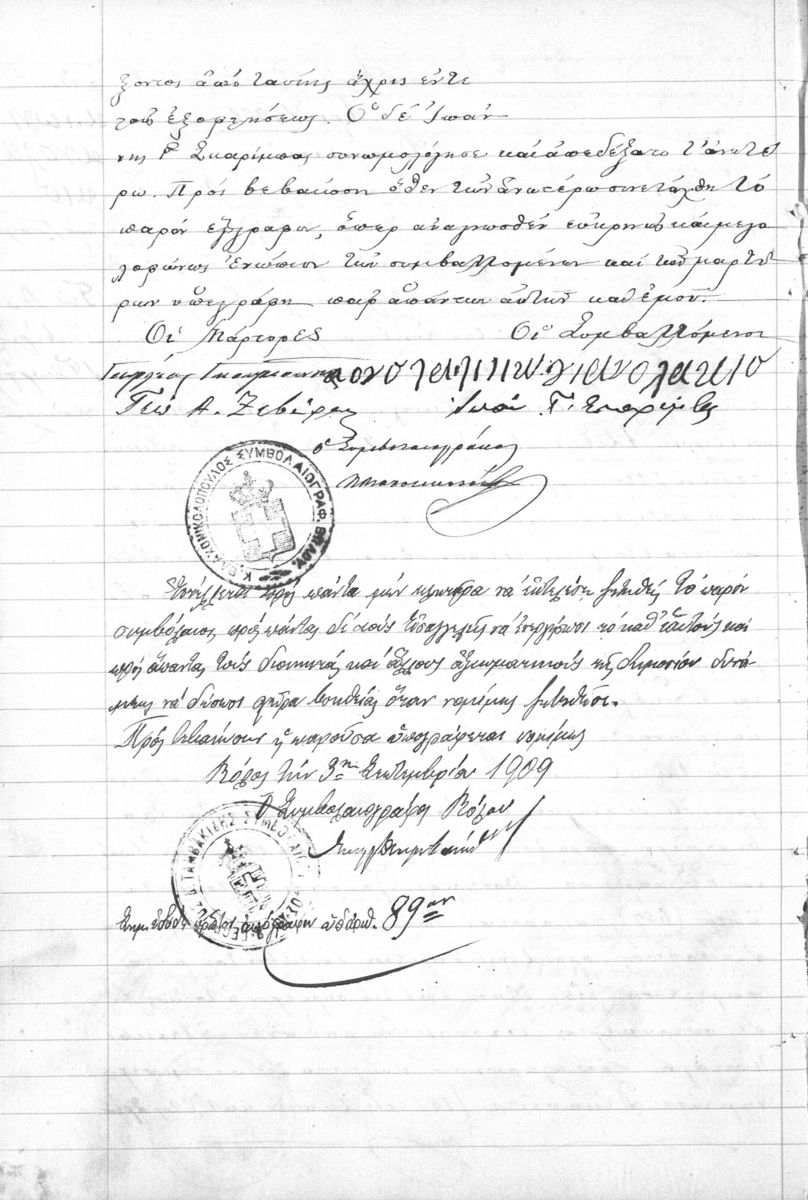 ξοντος ἀπό ταύτης ἄχρις ἐντε
λοῦς ἐξοφλήσεως. Ὁ δέ Ἰωάν
νης Γ. Σκαρίμπας συνωμολόγησε καί ἀπεδέξατο τ' ἀνωτέ
ρω. Πρός βεβαίωσιν ὅθεν τῶν ἀνωτέρω συνετάχθη τό
παρόν ἔγγραφον, ὅπερ ἀναγνωσθέν εὐκρινῶς καί μεγα
λοφώνως ἐνώπιον τῶν συμβαλλομένων καί τῶν μαρτύ
ρων ὑπεγράφη παρ' ἁπάντων αὐτῶν καί ἐμοῦ.
Οἱ Μάρτυρες
Οἱ Συμβαλλόμενοι
Γεώργιος
Γεώ Α. Ζεβέρης
Ἰωάν Γ. Σκαρίμπας
Ὁ Συμβολαιογράφος
ΣΥΜΒΟΛΑΙΟΓΡΑΦ.
πρός πάντα κλητῆρα νά ἐκτελέσῃ τό παρόν
συμβόλαιον, πρός πάντας δέ τούς Εἰσαγγελεῖς νά ἐνεργήσωσι τό καθ' ἑαυτούς καί
πρός ἅπαντας τούς διοικητάς καί ἄλλους ἀξιωματικούς τῆς δημοσίου δυνά-
μεως νά δώσωσι χεῖρα βοηθείας ὅταν νομίμως ζητηθῶσι.
Πρός βεβαίωσιν ἡ παροῦσα ὑπογράφεται νομίμως
Βόλος τήν 3ην Σεπτεμβρίου 1909
Ὁ Συμβολαιογράφος Βόλου
ΤΑΜΒΑΚΙΔΗΣ ΣΥΜΒΟΛΑΙΟΓ
πρῶτον ἀπόγραφον ὑπ' ἀριθ. 89ον